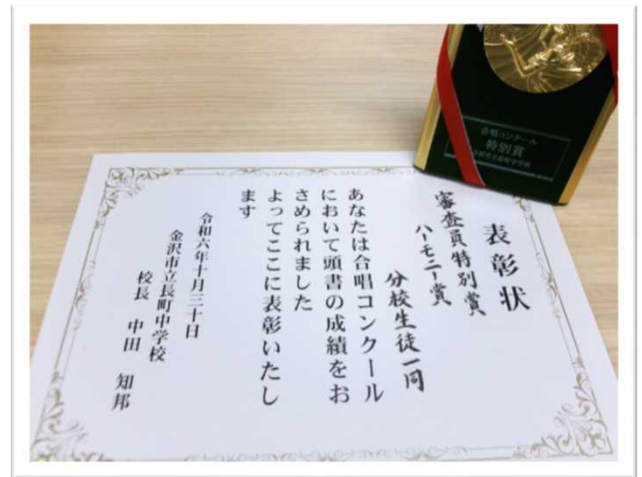 合唱コンクール
特別賞
表彰状
審査員特別賞
ハーモニー賞
分校生徒一同
あなたは合唱コンクール
において頭書の成績をお
さめられました
よってここに表彰いたし
ます
令和六年十月三十日
金沢市立長町中学校
校長 中田 知邦